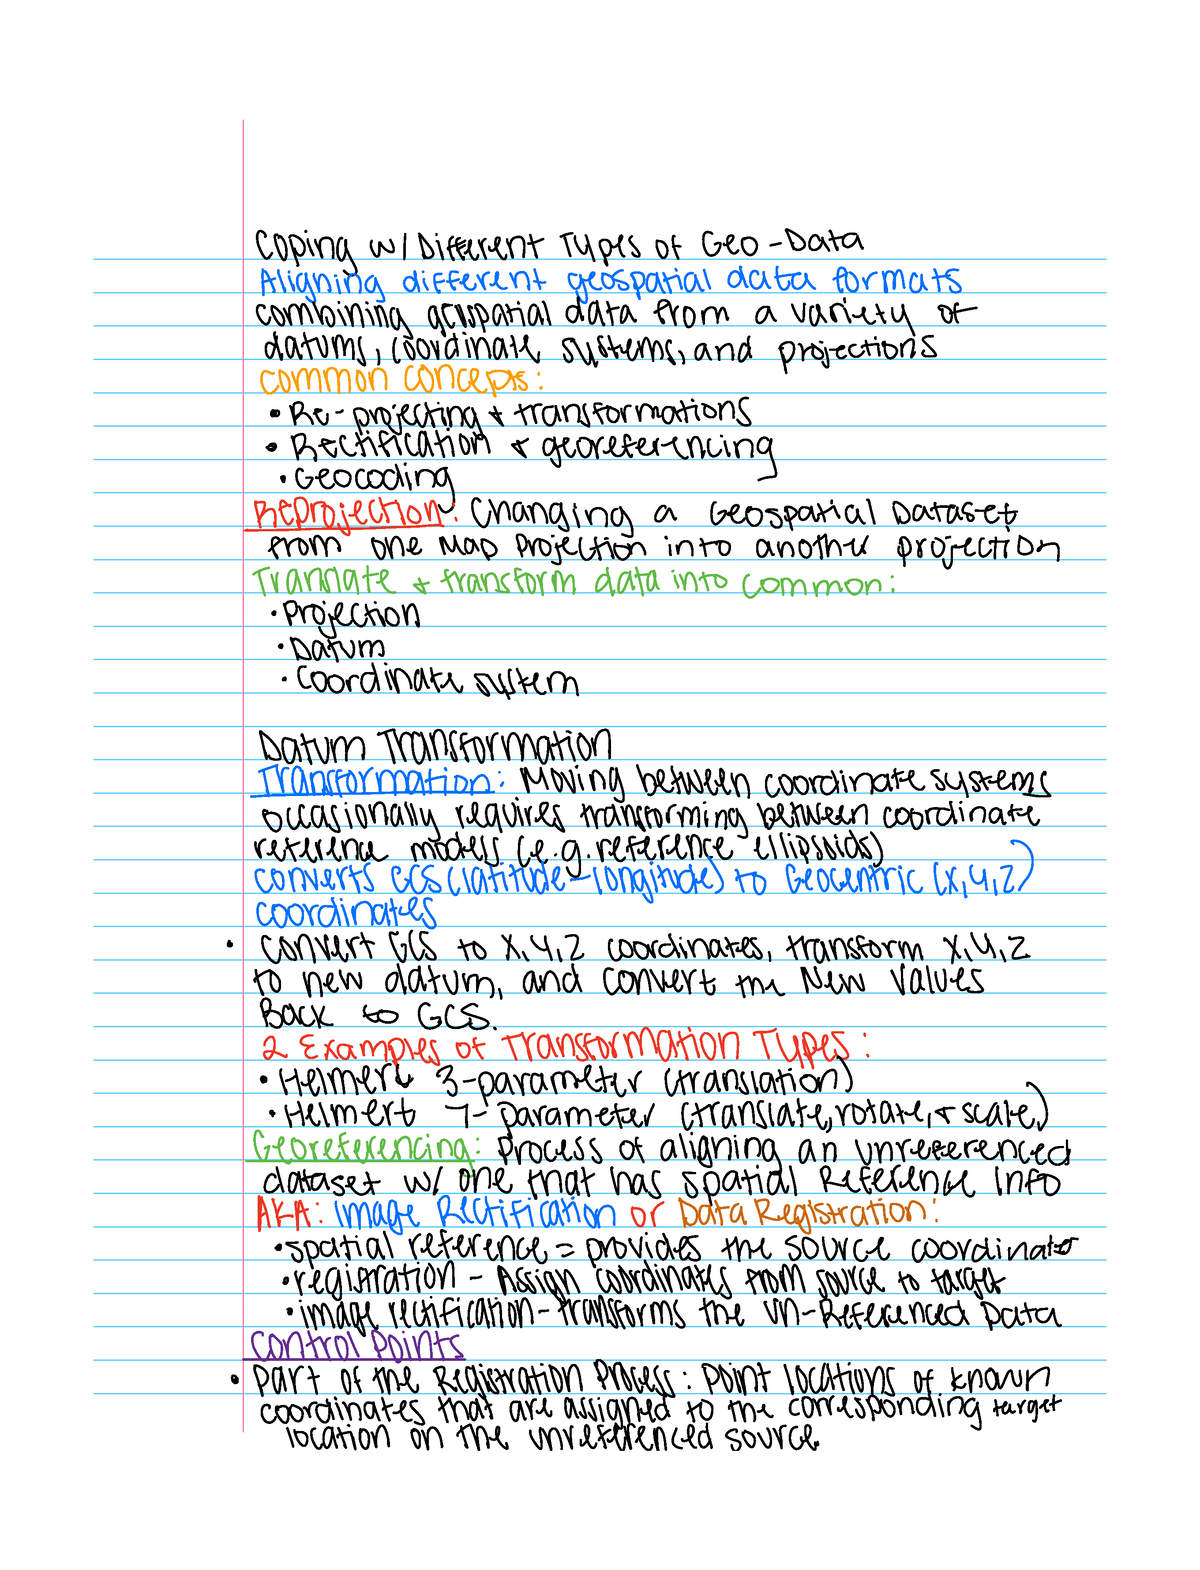 Coping w/ Different Types of Geo-Data
Aligning different geospatial data formats
combining geospatial data from a variety of
datums, coordinate systems, and projections
common concepts:
• Re-projecting & transformations
• Rectification & georeferencing
• Geocoding
Reprojection: Changing a Geospatial Dataset
from one Map Projection into another projection
Translate & transform data into common:
• Projection
• Datum
• Coordinate system
Datum Transformation
Transformation: Moving between coordinate systems
occasionally requires transforming between coordinate
reference models (e.g. reference ellipsoids)
converts GCS (latitude-longitude) to Geocentric (x,y,z)
coordinates
• convert GCS to x,y,z coordinates, transform x,y,z
to new datum, and convert the New Values
Back to GCS.
2 Examples of Transformation Types:
• Helmert 3-parameter (translation)
• Helmert 7-parameter (translate, rotate, & scale)
Georeferencing: process of aligning an unreferenced
dataset w/ one that has spatial Reference Info
AKA: Image Rectification or Data Registration:
• spatial reference = provides the source coordinates
• registration - Assign coordinates from source to target
• image rectification - transforms the un-Referenced Data
Control Points
• Part of the Registration Process: Point locations of known
coordinates that are assigned to the corresponding target
location on the unreferenced source.